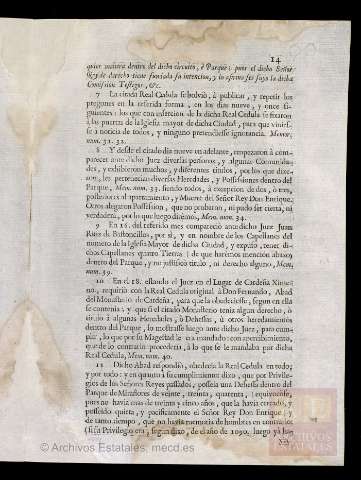 14
quier manera dentro del dicho circuito, ò Parque: pues el dicho Señor
Rey de derecho tiene fundada su intencion, y lo afirmo ser suyo la dicha
Comission Testigos, &c.
7 La citada Real Cedula se bolviò, à publicar, y repetir los
pregones en la referida forma, en los dias nueve, y once si-
guientes: los que con insercion de la dicha Real Cedula se fixaron
à las puertas de la Iglesia mayor de dicha Ciudad, para que vinies-
se à noticia de todos, y ninguno pretendiesse ignorancia. Memor.
num. 31. 32.
8 Y desde el citado dia nueve en adelante, empezaron à com-
parecer ante dicho Juez diversas personas, y algunas Comunida-
des, y exhibieron muchas, y diferentes titulos, por los que dixe-
ron, les pertenecian diversas Heredades, y Possessiones dentro del
Parque, Mem. num. 33. siendo todos, à excepcion de dos, ò tres,
posteriores al apartamiento, y Muerte del Señor Rey Don Enrique.
Otros alegaron Possession, que no probaron, ni pudo ser cierta, ni
verdadera, por lo que luego dirèmos, Mem. num. 34.
9 En 16. del referido mes compareciò ante dicho Juez Juan
Ruiz de Bastoncillos, por sì, y en nombre de los Capellanes del
numero de la Iglesia Mayor de dicha Ciudad, y expuso, tener di-
chos Capellanes quatro Tierras (de que haremos mencion abaxo)
dentro del Parque, y no justificò titulo, ni derecho alguno, Mem.
num. 39.
10 En el 18. estando el Juez en el Lugar de Cardeña Ximeno
no, requiriò con la Real Cedula original à Don Fernando, Abad
del Monasterio de Cardeña, para que la obedeciesse, segun en ella
se contenia: y que si el citado Monasterio tenia algun derecho, ò
titulo à algunas Heredades, ò Dehessas, ù otros heredamientos
dentro del Parque, lo mostrasse luego ante dicho Juez, para cum-
plir, lo que por su Magestad le era mandado: con apercibimiento,
que de lo contrario procederia, à lo que se le mandaba por dicha
Real Cedula, Mem. num. 40.
11 Dicho Abad respondiò, obedecia la Real Cedula en todo;
y por todo: y en quanto à su cumplimiento dixo, que por Privile-
gios de los Señores Reyes passados, posseìa una Dehessa dentro del
Parque de Miraflores de veinte, treinta, quarenta, (equivocòse,
pues no havia mas de treinta y cinco) años, que la havia cercado, y
posseìdo quieta, y pacificamente el Señor Rey Don Enrique) y
de tanto tiempo, que no havia memoria de hombres en contrario:
(si su Privilegio era, segun dixo, de el año de 1090. luego yà ha-
© Archivos Estatales, mecd.es
ARCHIVOS
ESTATALES